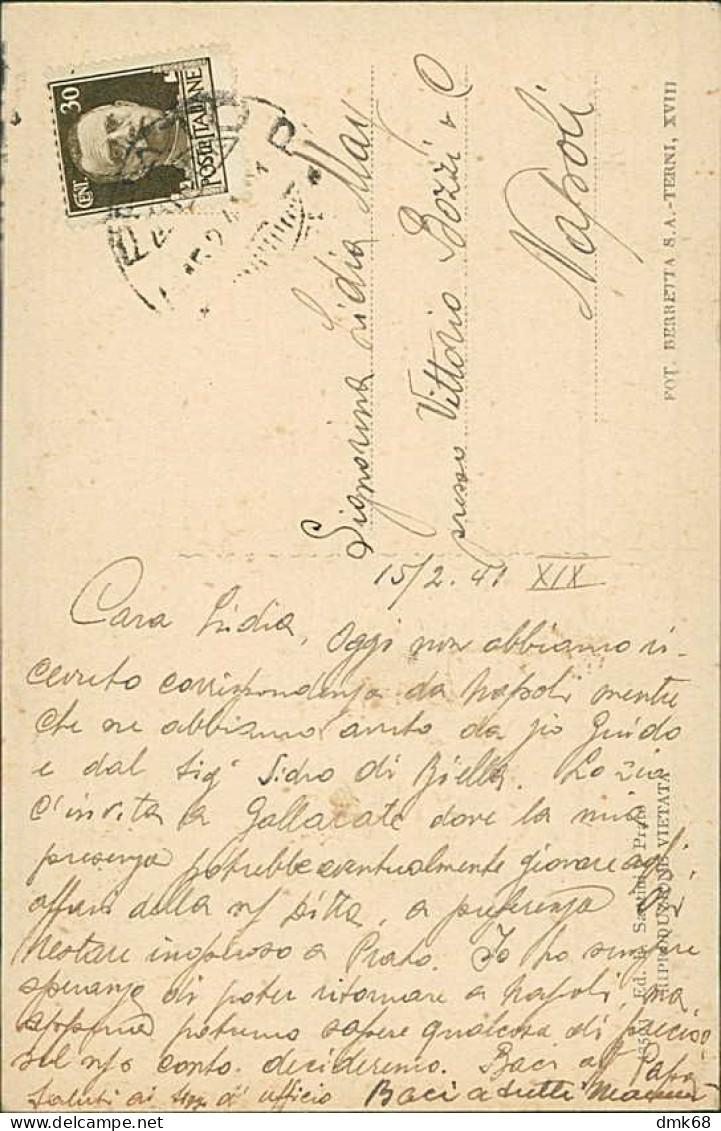 CENT. 30
POSTE ITALIANE
Signorina Lidia May
presso Vittorio Bozzi & C
Napoli
FOT. BERRETTA S.A.-TERNI, XVIII
15/2. 41 XIX
Cara Lidia, Oggi non abbiamo ri-
cevuto corrispondenza da Napoli mentre
che ne abbiamo avuto da zio Guido
e dal Sig. Isidro di Biella. Lo zio
c'invita a Gallarate dove la mia
presenza potrebbe eventualmente giovare agli
affari della n/ Ditta, a preferenza di
restare inoperoso a Prato. Io ho sempre
speranza di poter ritornare a Napoli, ma
appena potremo sapere qualcosa di preciso
sul n/o conto. decideremo. Baci aff Papà
Saluti ai sigg. d'ufficio Baci a tutti Mamma
Ed. Santini Prato
RIPRODUZIONE VIETATA
© dmk68